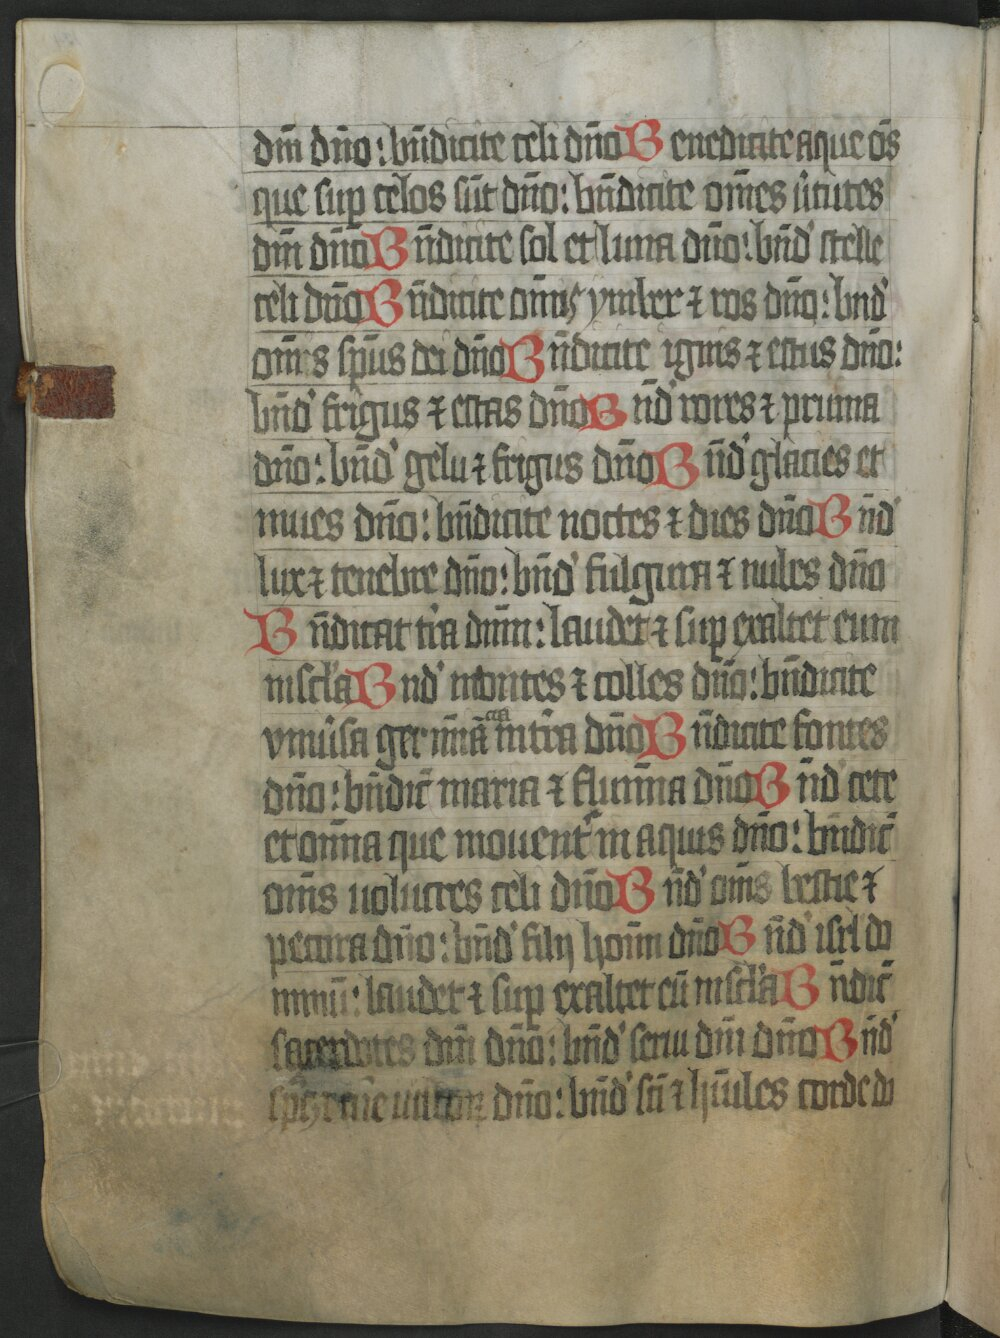 dm̄ dn̄o: bn̄dicite celi dn̄o Benedicite aque om̄s
que sup celos sūt dn̄o: bn̄dicite om̄es u̇tutes
dm̄ dn̄o Bn̄dicite sol et luna dn̄o: bn̄d' stelle
celi dn̄o Bn̄dicite om̄is ymber ⁊ ros dn̄o: bnd'
om̄es sp̄us dei dn̄o Bn̄dicite ignis ⁊ estus dn̄o:
bn̄d' frigus ⁊ estas dn̄o Bn̄d' rores ⁊ pruina
dn̄o: bn̄d' gelu ⁊ frigus dn̄o Bn̄d' glacies et
niues dn̄o: bn̄dicite noctes ⁊ dies dn̄o Bn̄d'
lux ⁊ tenebre dn̄o: bn̄d' fulgura ⁊ nubes dn̄o
Bn̄dicat t'ra dnm̄: laudet ⁊ sup exaltet eum
in scl'a Bnd' montes ⁊ colles dn̄o: bn̄dicite
vniu'sa ger mīa\ncia/ in t'ra dn̄o Bn̄dicite fontes
dn̄o: bn̄dic̄ maria ⁊ flumīa dn̄o Bn̄d' cete
et om̄ia que mouent' in aquis dn̄o: bn̄dic̄
om̄s uolucres celi dn̄o Bn̄d' om̄s bestie ⁊
pecora dn̄o: bn̄d' filij hoīm dn̄o Bn̄d' isrl do
minū: laudet ⁊ sup exaltet eū in scl'a Bn̄dic̄
sacerdotes dm̄ dn̄o: bn̄d' serui dm̄ dn̄o Bn̄d'
dn̄o: bn̄d' sc̄i ⁊ hūiles corde do